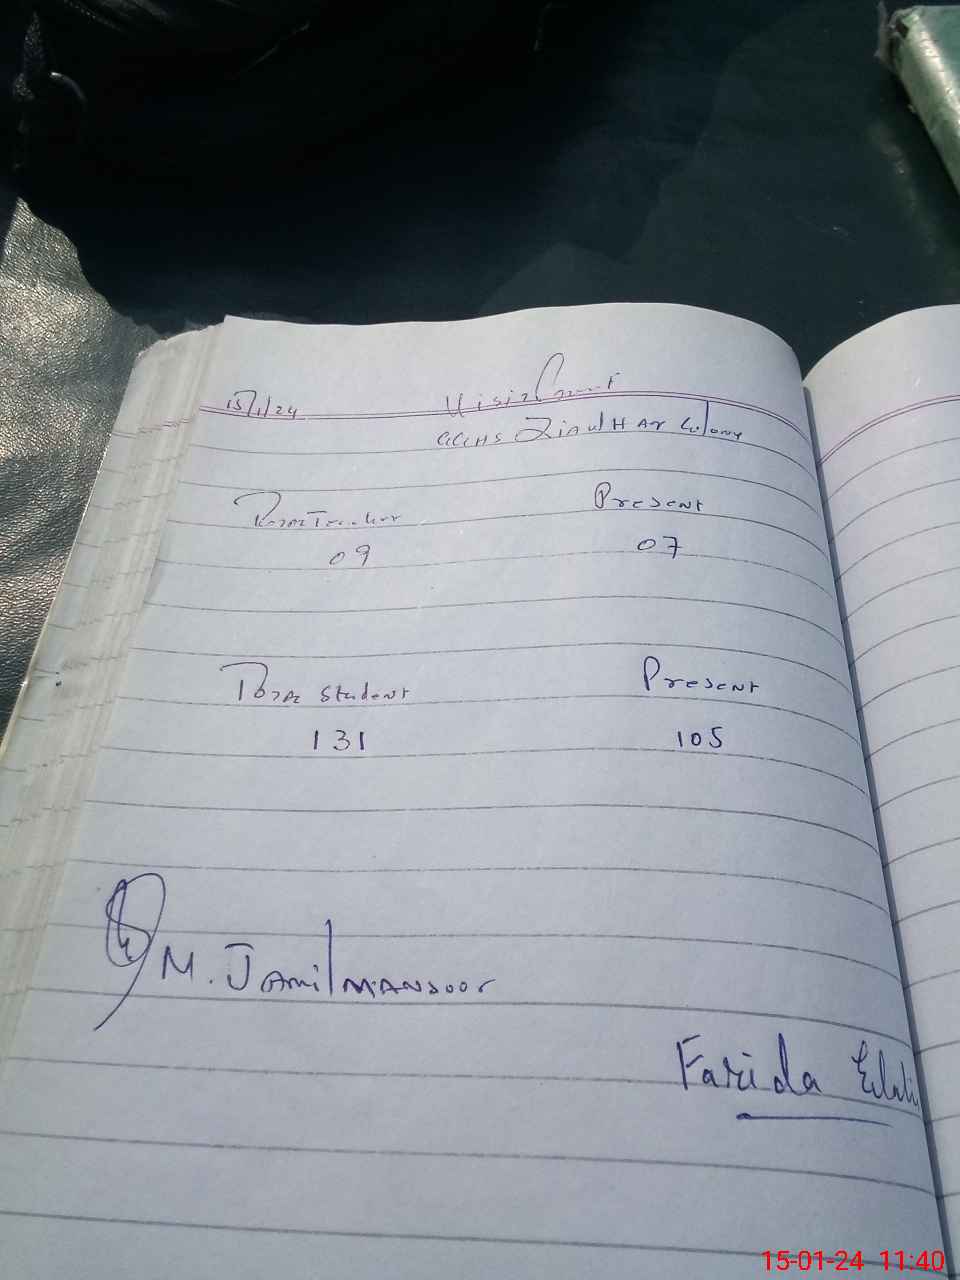 15/1/24
Visit
GGHS Zia ul Haq Colony
Total Teacher Present
09 07
Total Student Present
131 105
M. Jamil MANSOOR
Farida
15-01-24 11:40